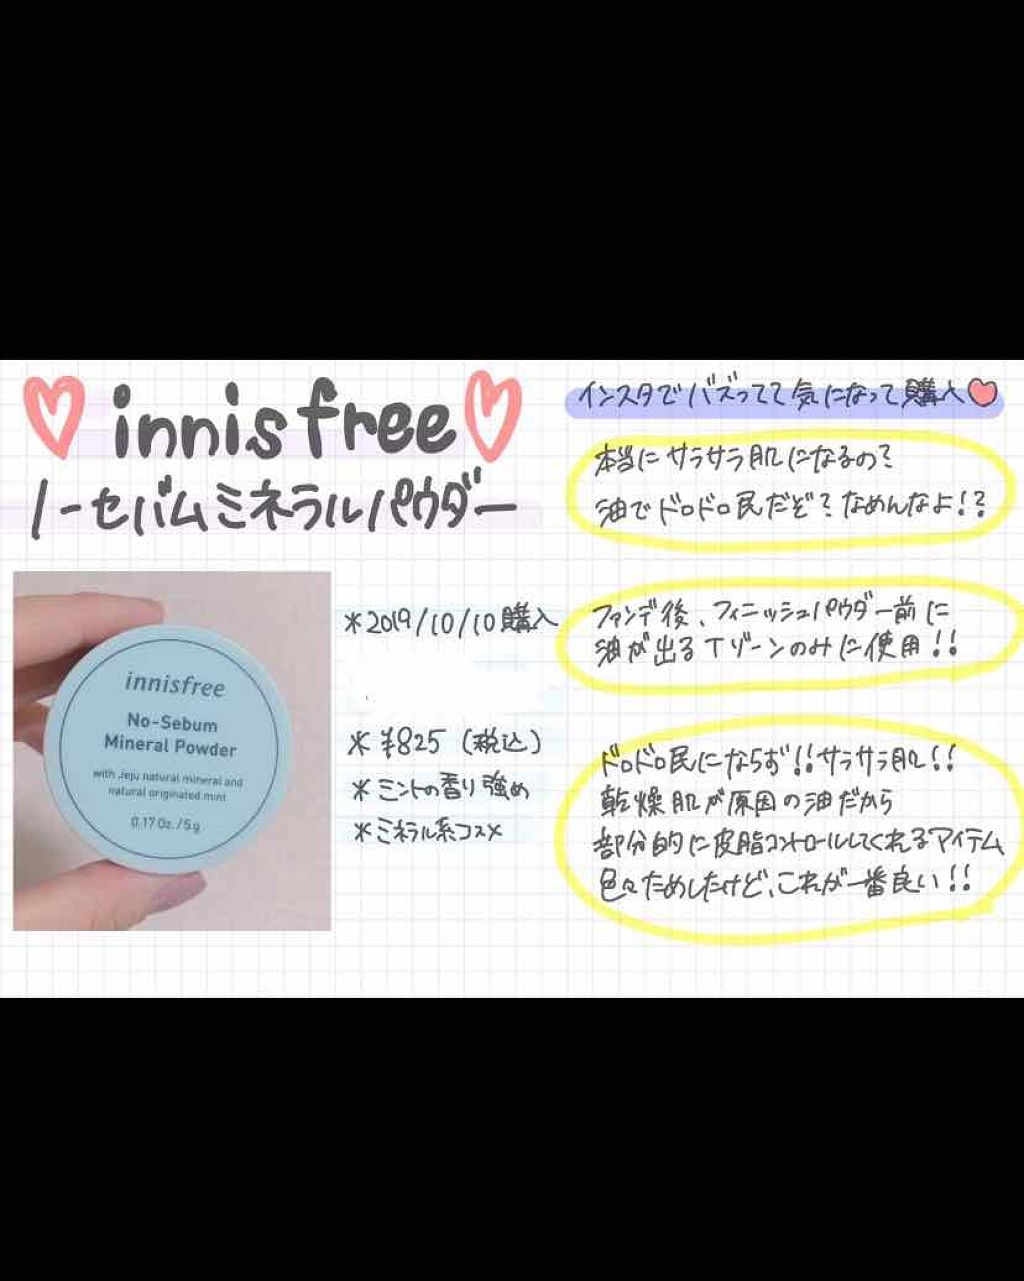 innisfree
ノーセバムミネラルパウダー
innisfree
No-Sebum
Mineral Powder
with Jeju natural mineral and
natural originated mint
0.17 Oz. / 5 g
*2019/10/10購入
*¥825(税込)
*ミントの香り強め
*ミネラル系コスメ
インスタでバズってて気になって購入
本当にサラサラ肌になるの?
油でドロドロ民だぞ?なめんなよ!?
ファンデ後、フィニッシュパウダー前に
油が出るTゾーンのみに使用!!
ドロドロ民にならず!!サラサラ肌!!
乾燥肌が原因の油だから
部分的に皮脂コントロールしてくれるアイテム
色々ためしたけど、これが一番良い!!